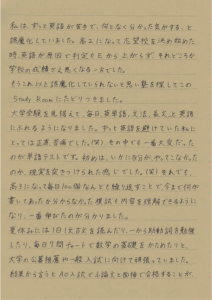 私は、ずっと英語が苦手で、何となく分かった気がする、と
誤魔化していました。高三になって志望校を決め始めた
時、英語が原因で判定がEから上がらず、それどころか
学校の成績でさえ悪くなるいっぽでした。
もうこれ以上誤魔化していられないと思い塾を探してこの
Study Roomにたどりつきました。
大学受験を見据えて、毎日、英単語、文法、長文、と英語
にふれるようになりました。ずっと英語を避けていた私に
とっては正直苦痛でした。(笑)その中でも一番大変だった
のが単語テストです。初めは、いかに自分が、やってこなかった
のか、現実を突きつけられた感じでした。(笑)それでも、
高3になって毎日100個なんとも繰り返すことで、今まで何が
書いてあったか分からなかった模試も内容を理解できるようにな
り、一番伸びたのが分かりました。
夏休みには1日1大吉を読んだり、一から前動詞を勉強
したり、毎日7時
数学の基礎をかためたりと、
大学の公募推薦や一般入試に向けて頑張っていました。
結果から言うとAO入試で小論文と面接で合格することが、